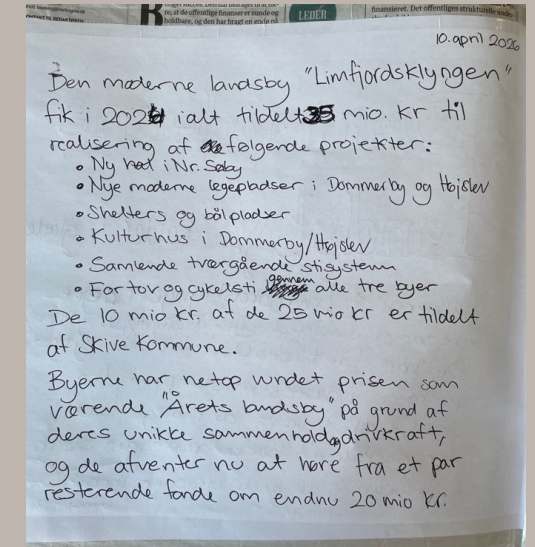 re, at de offentlige finanser er sunde og
holdbare, og den har bragt en ende på
LEDER
finansieret. Det offentliges strukturelle
10. april 2026
Den moderne landsby "Limfjordsklyngen"
fik i 202 ialt tildelt 35 mio. kr til
realisering af følgende projekter:
• Ny hal i Nr. Søby
• Nye moderne legepladser i Dommerby og Højslev
• Shelters og bålpladser
• Kulturhus i Dommerby/Højslev
• Samlende tværgående stisystem
• Fortov og cykelsti gennem alle tre byer
De 10 mio kr. af de 25 mio kr er tildelt
af Skive Kommune.
Byerne har netop vundet prisen som
værende "Årets landsby" på grund af
deres unikke sammenhold og drivkraft,
og de afventer nu at høre fra et par
resterende fonde om endnu 20 mio kr.